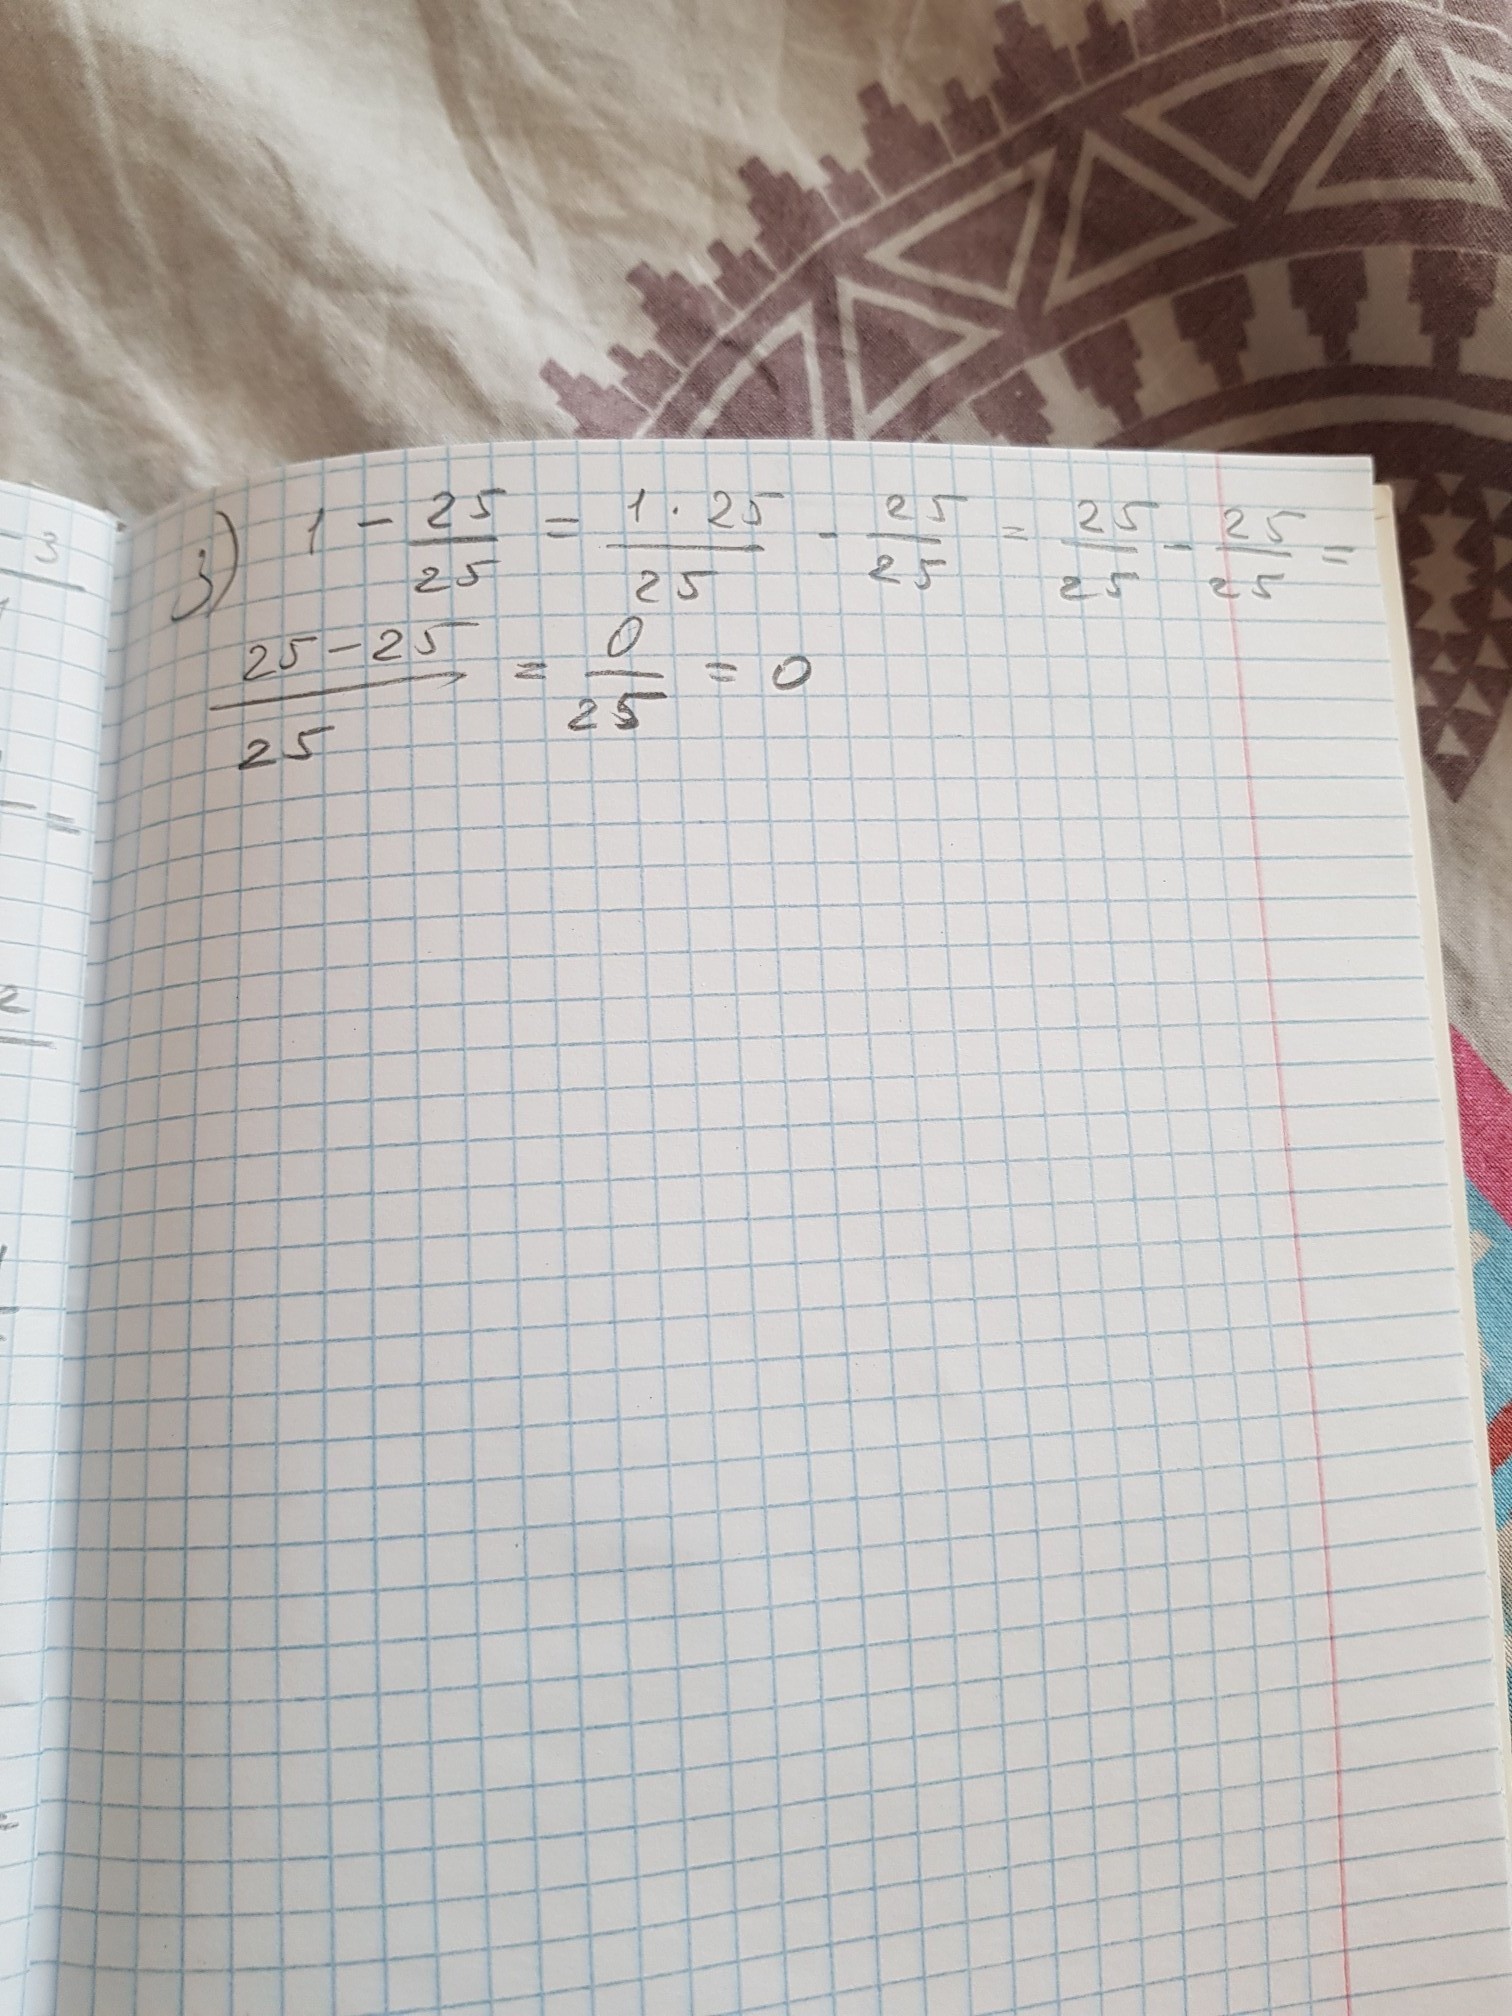 3) 1 - 25/25 = 1·25/25 - 25/25 = 25/25 - 25/25 =
25-25/25 = 0/25 = 0
- 3
2